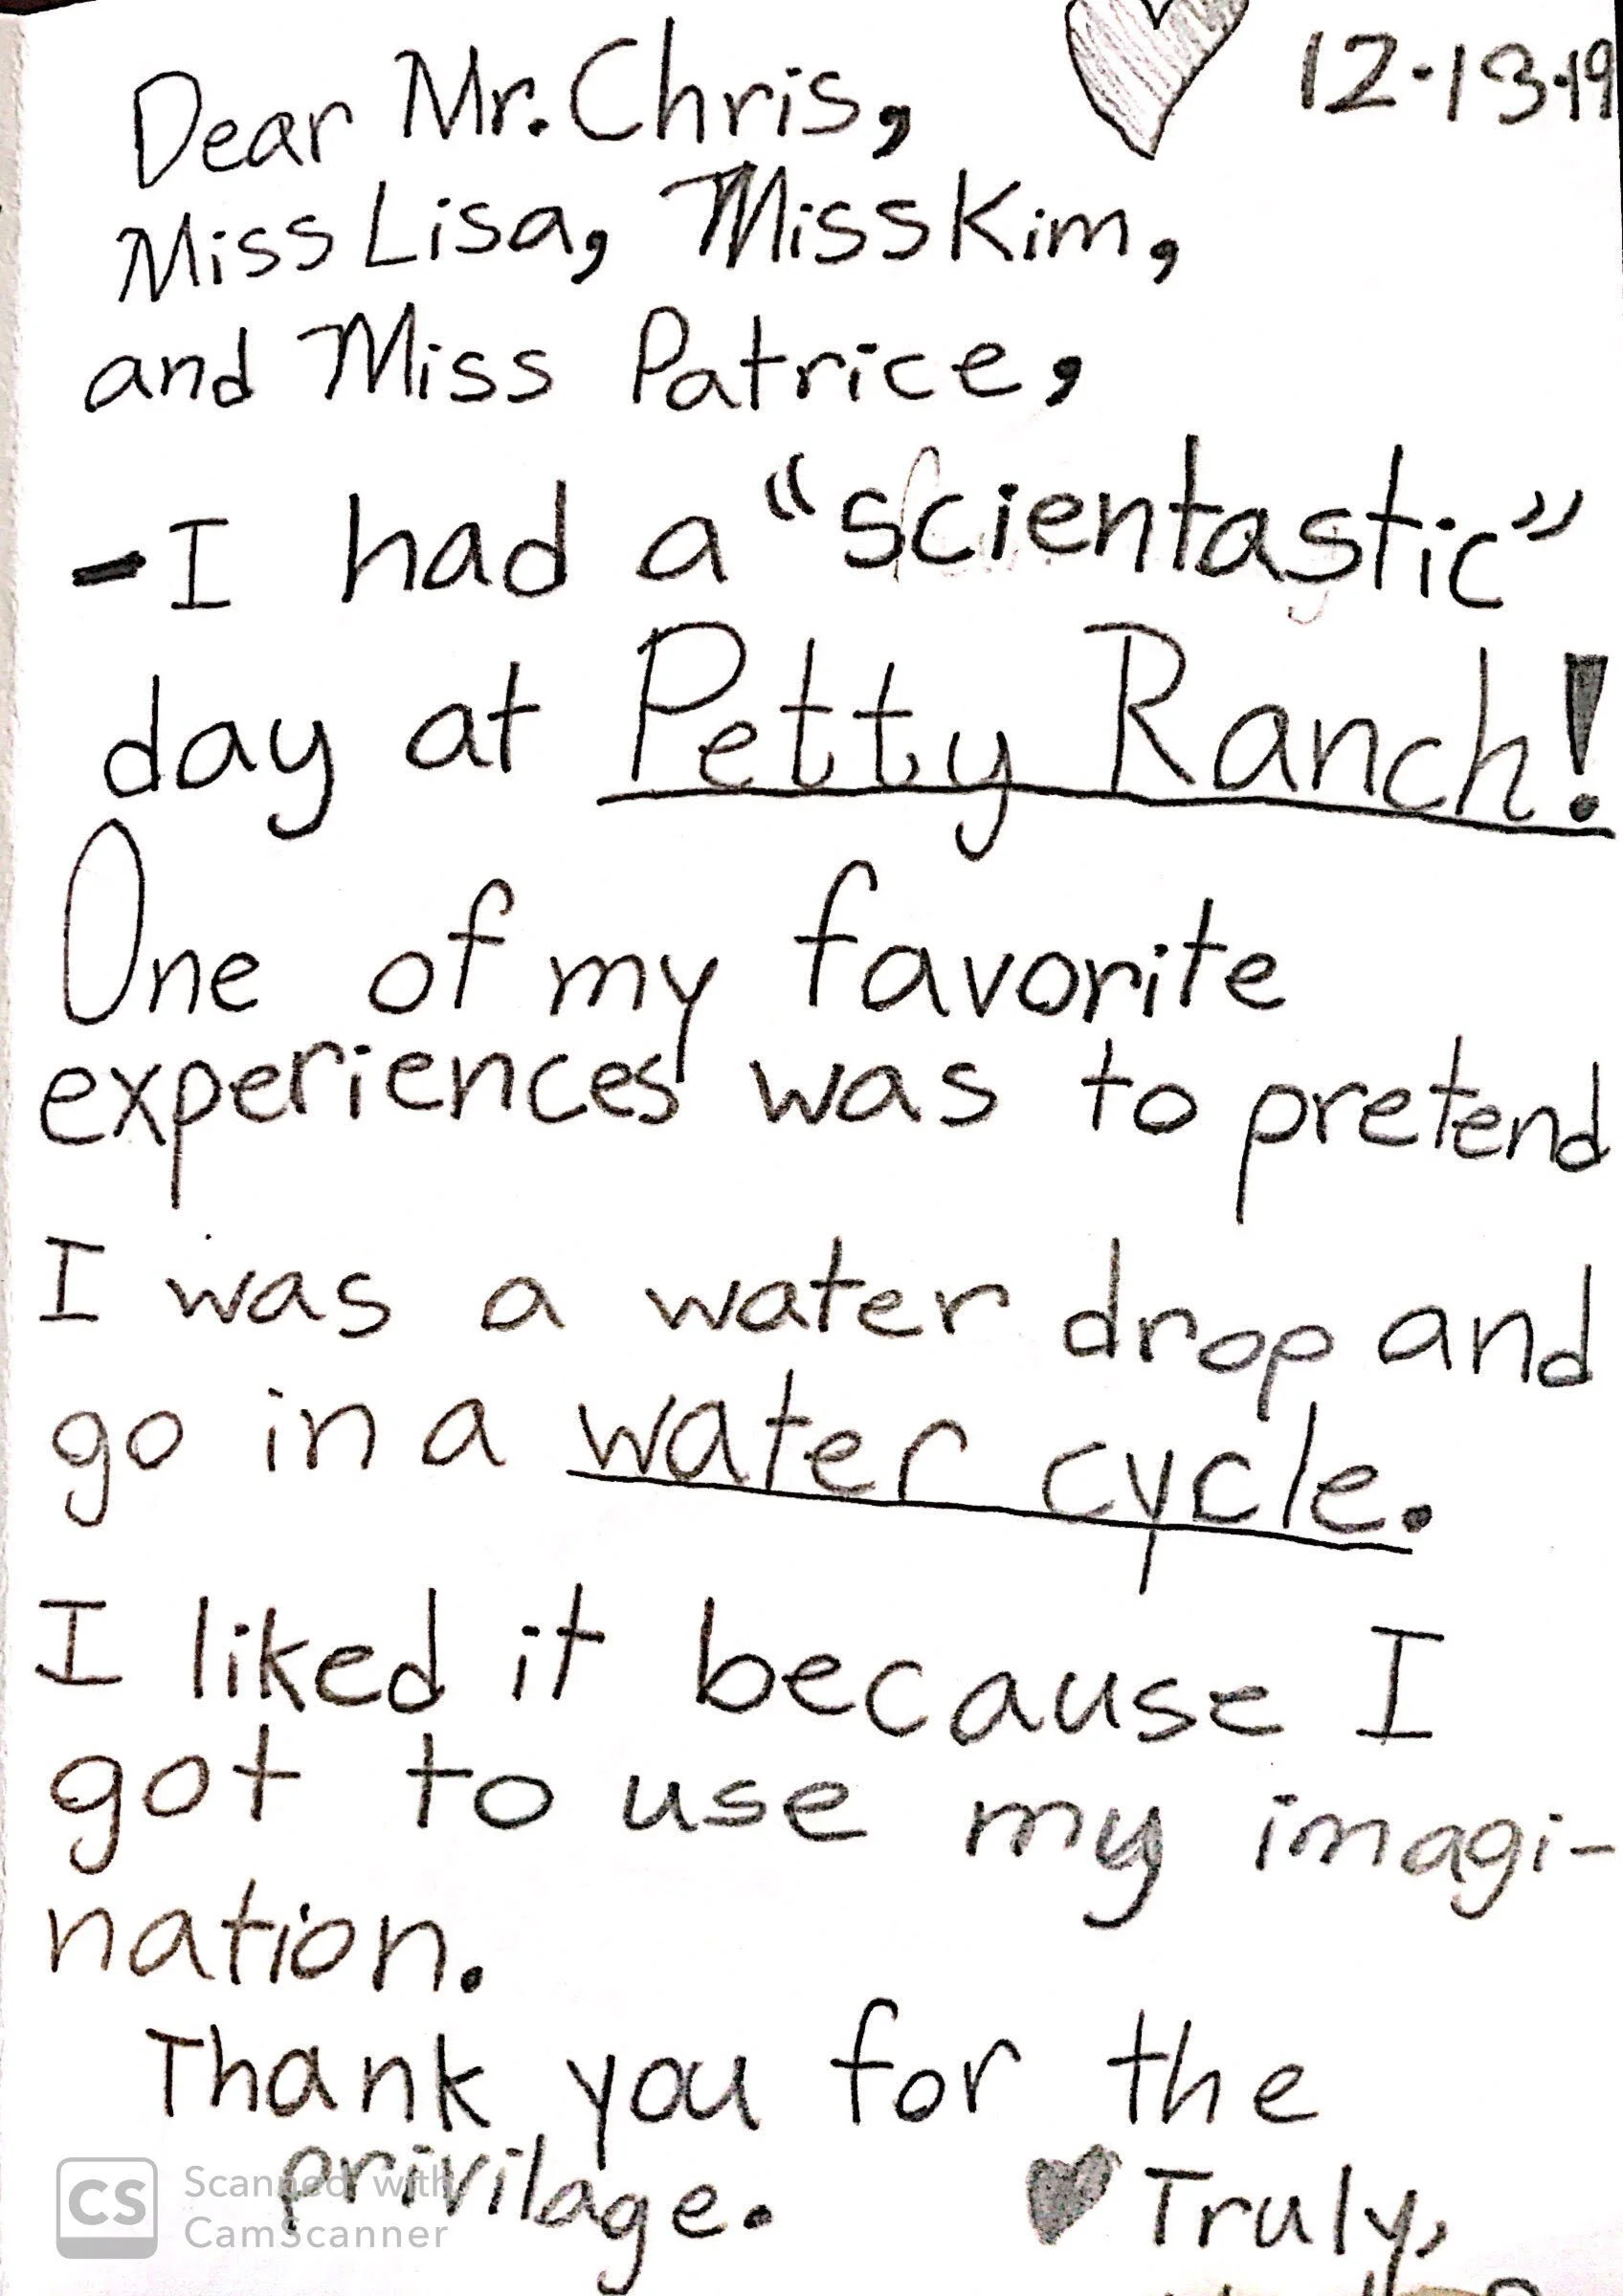 Dear Mr. Chris, 12-13-19
Miss Lisa, Miss Kim,
and Miss Patrice,
-I had a "scientastic"
day at Petty Ranch!
One of my favorite
experiences was to pretend
I was a water drop and
go in a water cycle.
I liked it because I
got to use my imagi-
nation.
Thank you for the
privilage.
Truly,
CS Scanned with
CamScanner